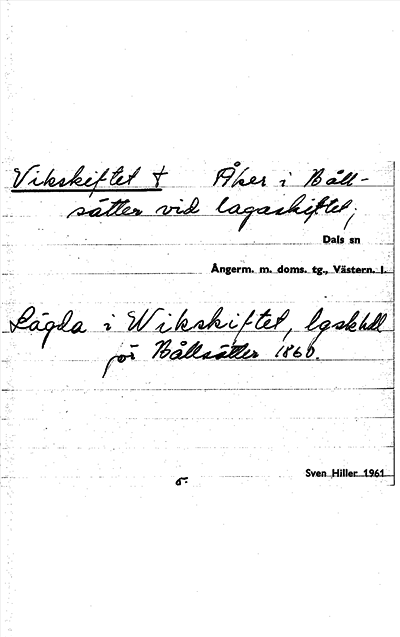 Vikskiftet † Åker i Båll-
sätter vid lagaskiftet;
Dals sn
Ångerm. m. doms. tg., Västern. l.
Lägda i Wikskiftet, lgskhdl
för Bållsätter 1860.
Sven Hiller 1961